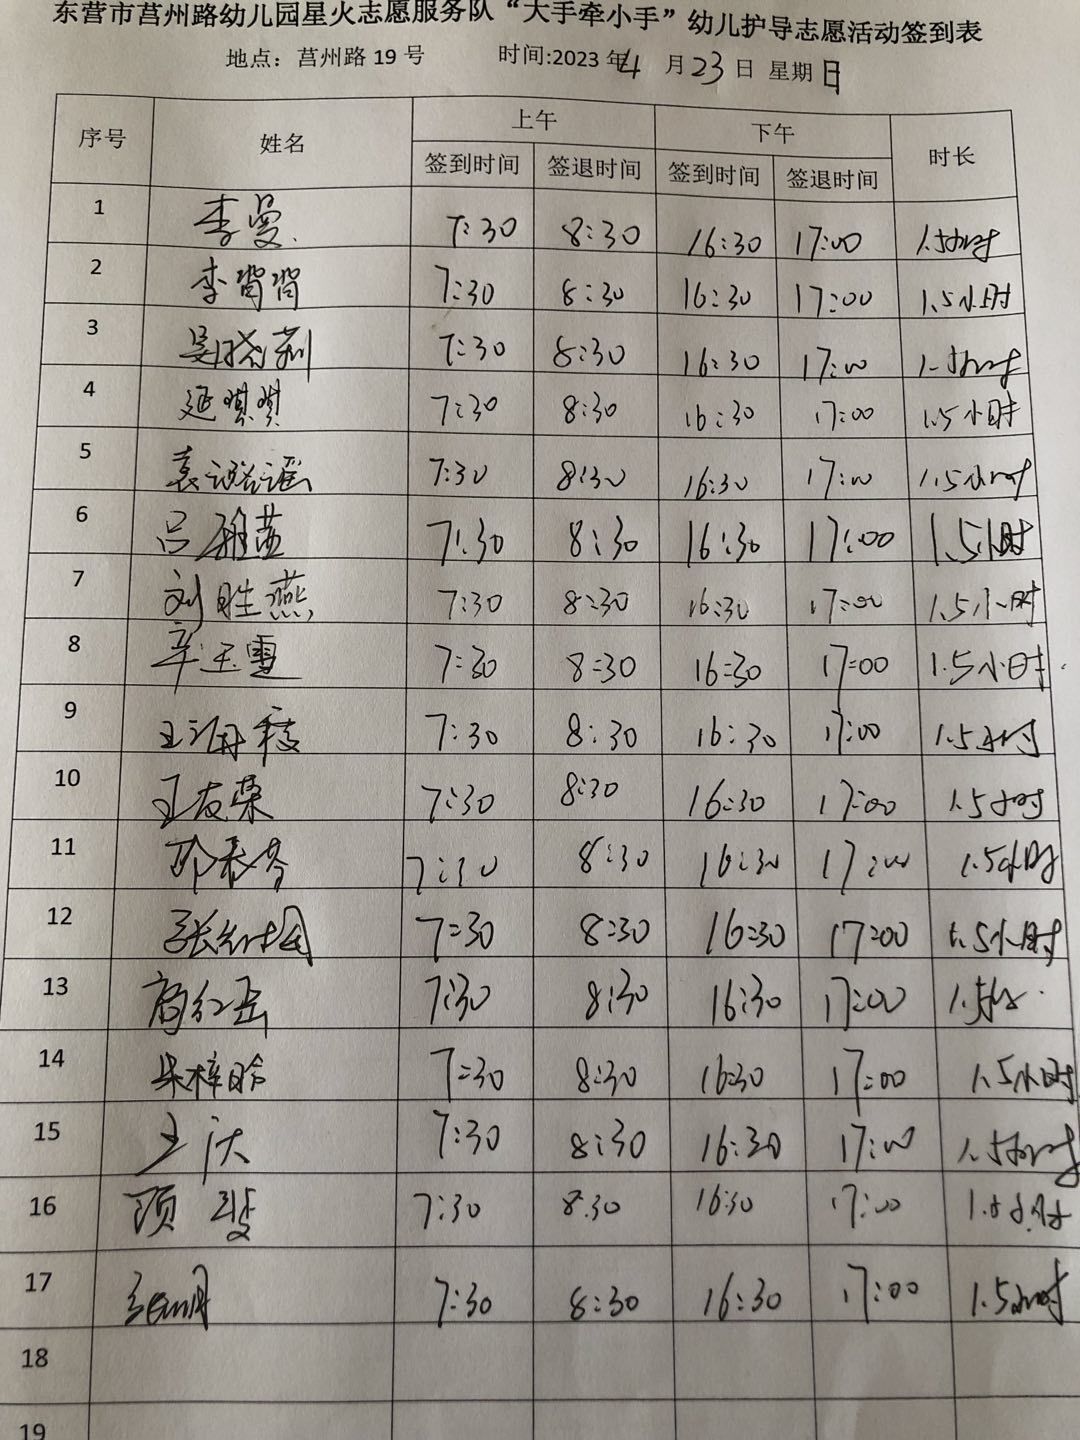 东营市莒州路幼儿园星火志愿服务队“大手牵小手”幼儿护导志愿活动签到表
地点：莒州路 19 号 时间:2023 年 4 月 23 日 星期日
序号 姓名 上午 下午 时长
签到时间 签退时间 签到时间 签退时间
1 李曼 7:30 8:30 16:30 17:00 1.5小时
2 李肖肖 7:30 8:30 16:30 17:00 1.5小时
3 吴晓莉 7:30 8:30 16:30 17:00 1.5小时
4 延琪琪 7:30 8:30 16:30 17:00 1.5小时
5 袁 谣 7:30 8:30 16:30 17:00 1.5小时
6 吕雅茹 7:30 8:30 16:30 17:00 1.5小时
7 刘胜燕 7:30 8:30 16:30 17:00 1.5小时
8 辛玉雪 7:30 8:30 16:30 17:00 1.5小时
9 王海 7:30 8:30 16:30 17:00 1.5小时
10 王友荣 7:30 8:30 16:30 17:00 1.5小时
11 7:30 8:30 16:30 17:00 1.5小时
12 张 7:30 8:30 16:30 17:00 1.5小时
13 红 7:30 8:30 16:30 17:00 1.5
14 朱梓晗 7:30 8:30 16:30 17:00 1.5小时
15 王庆 7:30 8:30 16:30 17:00 1.5小时
16 顾斐 7:30 8:30 16:30 17:00 1.5小时
17 7:30 8:30 16:30 17:00 1.5小时
18
19